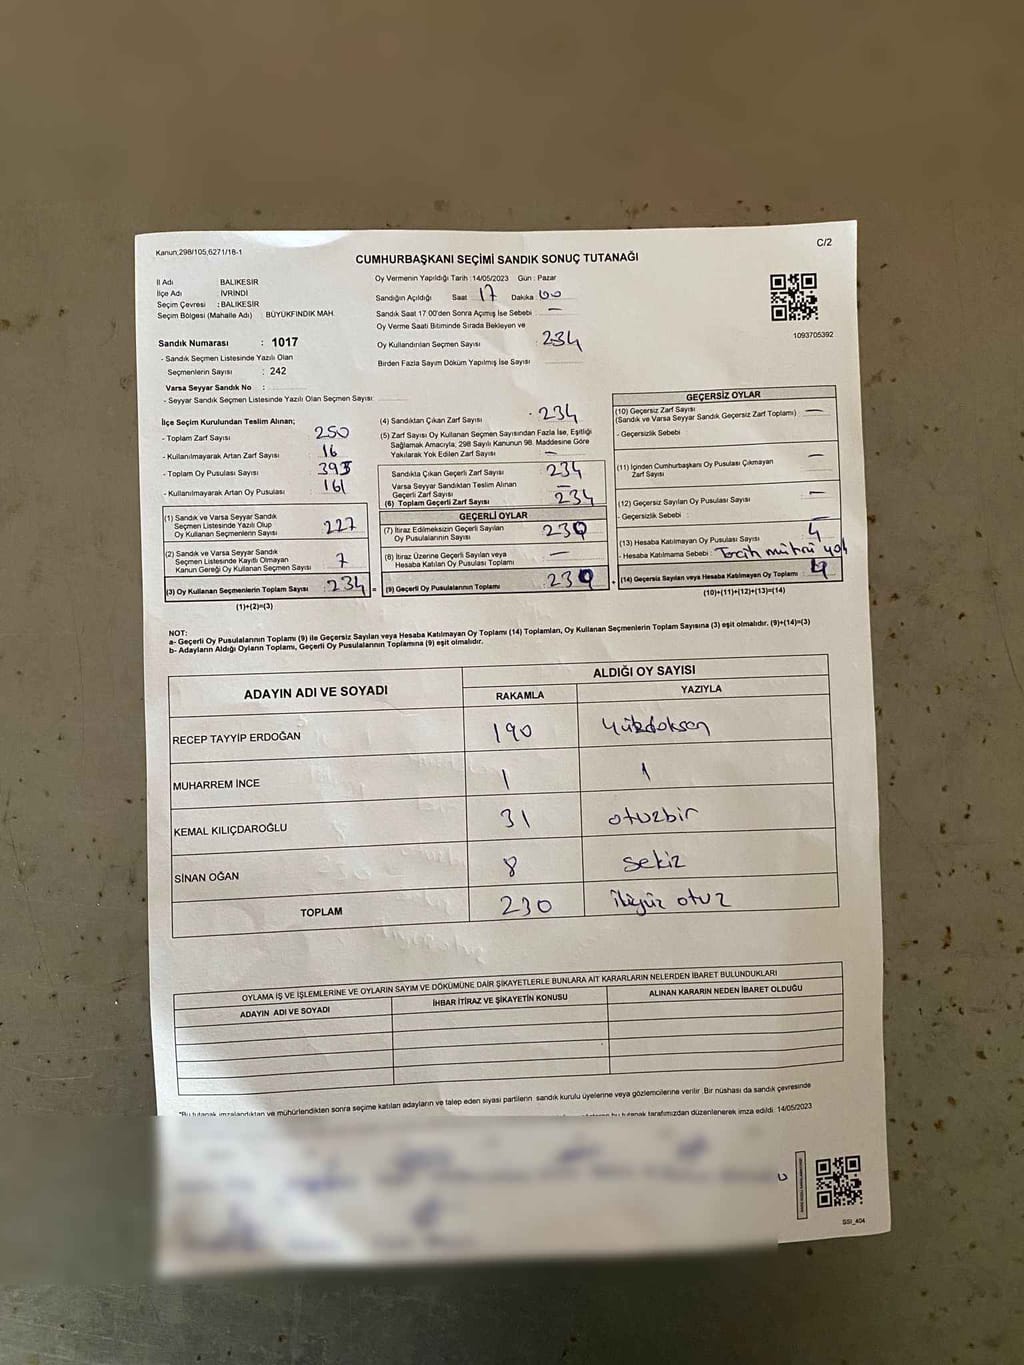 Kanun,298/105,6271/18-1
C/2
CUMHURBAŞKANI SEÇİMİ SANDIK SONUÇ TUTANAĞI
İl Adı BALIKESİR
İlçe Adı : İVRİNDİ
Seçim Çevresi : BALIKESİR
Seçim Bölgesi (Mahalle Adı) : BÜYÜKFINDIK MAH.
Sandık Numarası : 1017
- Sandık Seçmen Listesinde Yazılı Olan
Seçmenlerin Sayısı : 242
Varsa Seyyar Sandık No :
- Seyyar Sandık Seçmen Listesinde Yazılı Olan Seçmen Sayısı:
Oy Vermenin Yapıldığı Tarih : 14/05/2023 Gün : Pazar
Sandığın Açıldığı Saat 17 Dakika 00
Sandık Saat 17.00'den Sonra Açımış İse Sebebi : —
Oy Verme Saati Bitiminde Sırada Bekleyen ve
Oy Kullandırılan Seçmen Sayısı : 234
Birden Fazla Sayım Döküm Yapılmış İse Sayısı
1093705392
İlçe Seçim Kurulundan Teslim Alınan;
- Toplam Zarf Sayısı : 250
- Kullanılmayarak Artan Zarf Sayısı 16
- Toplam Oy Pusulası Sayısı : 395
- Kullanılmayarak Artan Oy Pusulası : 161
(1) Sandık ve Varsa Seyyar Sandık
Seçmen Listesinde Yazılı Olup
Oy Kullanan Seçmenlerin Sayısı : 227
(2) Sandık ve Varsa Seyyar Sandık
Seçmen Listesinde Kayıtlı Olmayan
Kanun Gereği Oy Kullanan Seçmen Sayısı : 7
(3) Oy Kullanan Seçmenlerin Toplam Sayısı : 234 =
(1)+(2)=(3)
(4) Sandıktan Çıkan Zarf Sayısı : 234
(5) Zarf Sayısı Oy Kullanan Seçmen Sayısından Fazla İse, Eşitliği
Sağlamak Amacıyla, 298 Sayılı Kanunun 98. Maddesine Göre
Yakılarak Yok Edilen Zarf Sayısı : —
Sandıkta Çıkan Geçerli Zarf Sayısı : 234
Varsa Seyyar Sandıktan Teslim Alınan
Geçerli Zarf Sayısı : —
(6) Toplam Geçerli Zarf Sayısı : 234
GEÇERLİ OYLAR
(7) İtiraz Edilmeksizin Geçerli Sayılan
Oy Pusulalarının Sayısı : 230
(8) İtiraz Üzerine Geçerli Sayılan veya
Hesaba Katılan Oy Pusulası Toplamı : —
(9) Geçerli Oy Pusulalarının Toplamı : 230 +
GEÇERSİZ OYLAR
(10) Geçersiz Zarf Sayısı : —
(Sandık ve Varsa Seyyar Sandık Geçersiz Zarf Toplamı)
- Geçersizlik Sebebi :
(11) İçinden Cumhurbaşkanı Oy Pusulası Çıkmayan
Zarf Sayısı : —
(12) Geçersiz Sayılan Oy Pusulası Sayısı : —
- Geçersizlik Sebebi :
(13) Hesaba Katılmayan Oy Pusulası Sayısı : 4
- Hesaba Katılmama Sebebi : Tercih mührü yok
(14) Geçersiz Sayılan veya Hesaba Katılmayan Oy Toplamı : 4
(10)+(11)+(12)+(13)=(14)
NOT:
a- Geçerli Oy Pusulalarının Toplamı (9) ile Geçersiz Sayılan veya Hesaba Katılmayan Oy Toplamı (14) Toplamları, Oy Kullanan Seçmenlerin Toplam Sayısına (3) eşit olmalıdır. (9)+(14)=(3)
b- Adayların Aldığı Oyların Toplamı, Geçerli Oy Pusulalarının Toplamına (9) eşit olmalıdır.
ADAYIN ADI VE SOYADI ALDIĞI OY SAYISI
RAKAMLA YAZIYLA
RECEP TAYYİP ERDOĞAN 190 yüzdoksan
MUHARREM İNCE 1 1
KEMAL KILIÇDAROĞLU 31 otuzbir
SİNAN OĞAN 8 sekiz
TOPLAM 230 ikiyüz otuz
OYLAMA İŞ VE İŞLEMLERİNE VE OYLARIN SAYIM VE DÖKÜMÜNE DAİR ŞİKAYETLERLE BUNLARA AİT KARARLARIN NELERDEN İBARET BULUNDUKLARI
ADAYIN ADI VE SOYADI İHBAR İTİRAZ VE ŞİKAYETİN KONUSU ALINAN KARARIN NEDEN İBARET OLDUĞU
"Bu tutanak imzalandıktan ve mühürlendikten sonra seçime katılan adayların ve talep eden siyasi partilerin sandık kurulu üyelerine veya gözlemcilerine verilir. Bir nüshası da sandık çevresinde
bu tutanak tarafımızdan düzenlenerek imza edildi. 14/05/2023
SSI_404